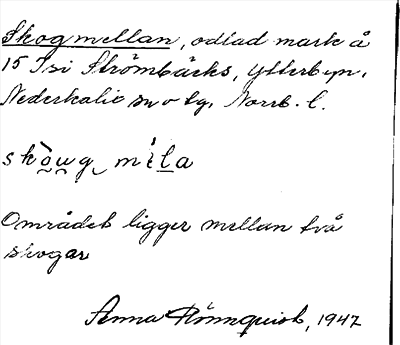 Skogmellan, odlad mark å
15 I si Strömbäcks, Ytterbyn,
Nederkalix sn o tg, Norrb. l.
skò̯u̯g mìḷa
Området ligger mellan två
skogar
Anna Rönnquist, 1947